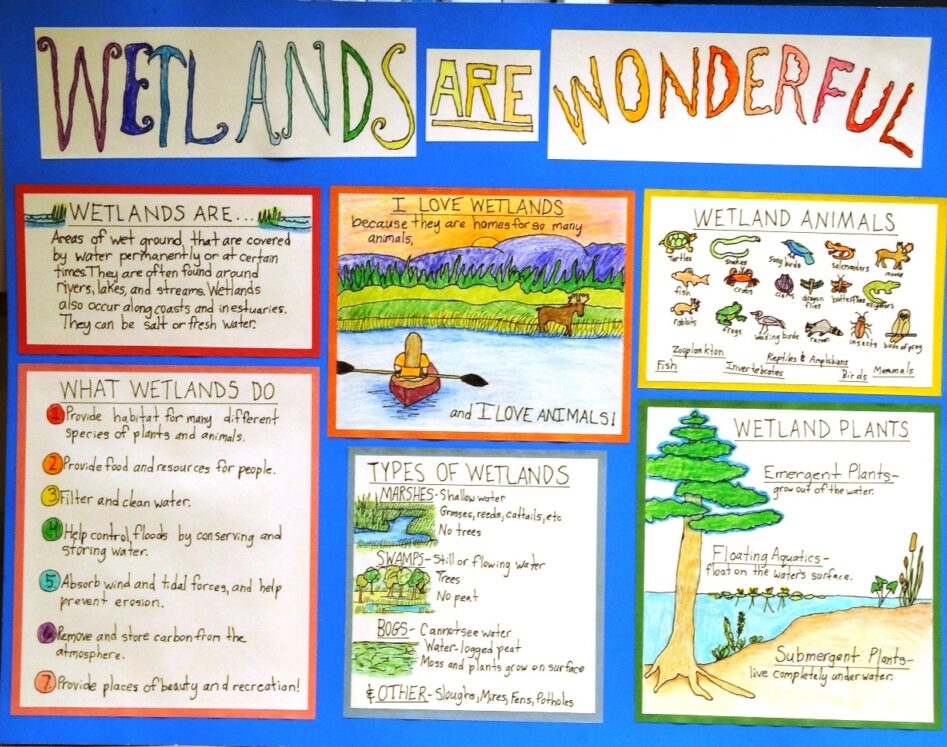 WETLANDS ARE WONDERFUL
WETLANDS ARE...
Areas of wet ground, that are covered
by water permanently or at certain
times. They are often found around
rivers, lakes, and streams. Wetlands
also occur along coasts and in estuaries.
They can be salt or fresh water.
WHAT WETLANDS DO
1. Provide habitat for many different
species of plants and animals.
2. Provide food and resources for people.
3. Filter and clean water.
4. Help control floods by conserving and
storing water.
5. Absorb wind and tidal forces, and help
prevent erosion.
6. Remove and store carbon from the
atmosphere.
7. Provide places of beauty and recreation!
I LOVE WETLANDS
because they are homes for so many
animals,
and I LOVE ANIMALS!
TYPES OF WETLANDS
MARSHES- Shallow water
Grasses, reeds, cattails, etc
No trees
SWAMPS- Still or flowing water
Trees
No peat
BOGS- Cannot see water
Water-logged peat
Moss and plants grow on surface
& OTHER- Sloughs, Mires, Fens, Potholes
WETLAND ANIMALS
Turtles snakes song birds salamanders moose
fish crabs clams dragon flies butterflies
rabbits frogs wading birds insects birds of prey
Zooplankton Reptiles & Amphibians
Fish Invertebrates Birds Mammals
WETLAND PLANTS
Emergent Plants-
grow out of the water.
Floating Aquatics-
float on the water's surface.
Submergent Plants-
live completely under water.